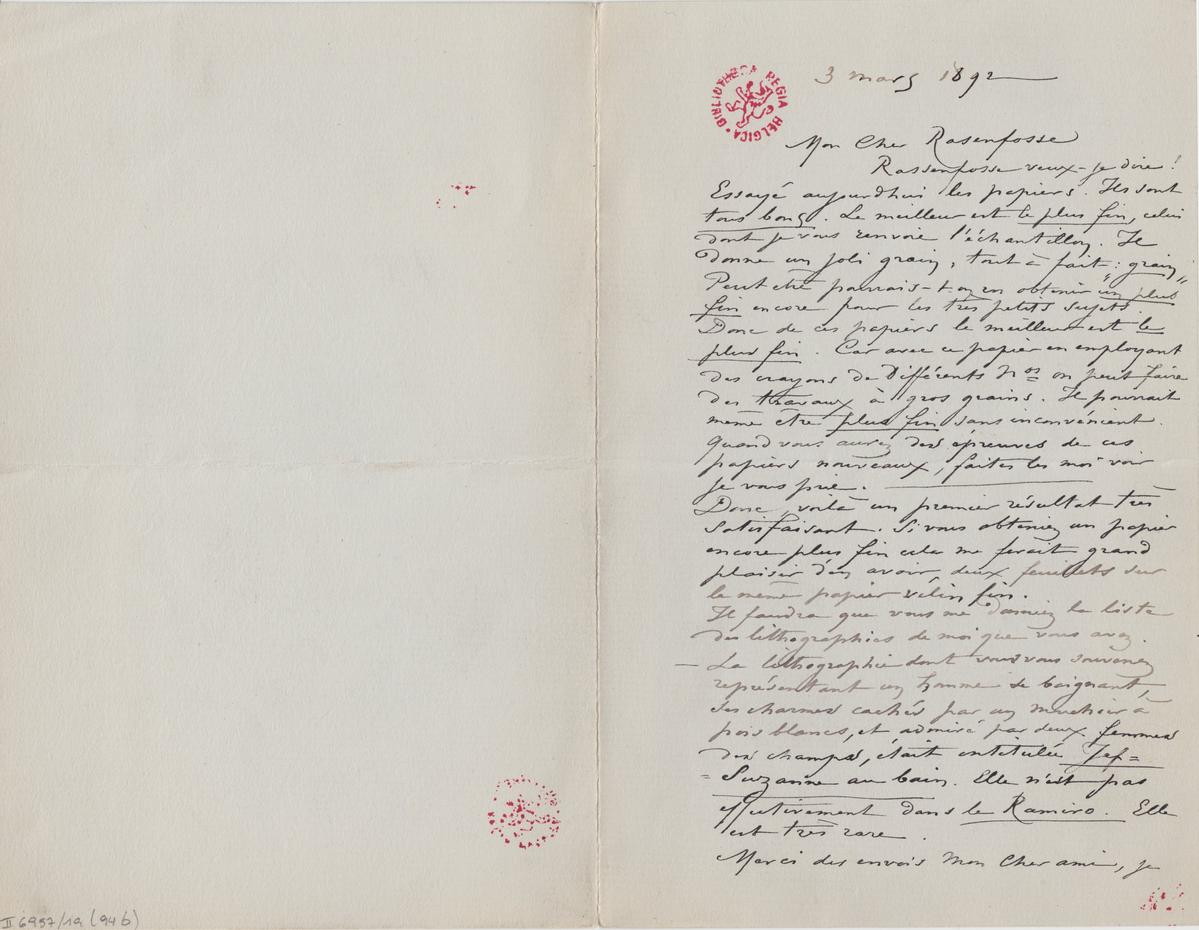 3 mars 1892
BIBLIOTHECA REGIA BELGICA
Mon Cher Rasenfosse
Rassenfosse veux-je dire !
Essayé aujourdhui les papiers. Ils sont
tous bons. Le meilleur est le plus fin, celui
dont je vous renvoie l'échantillon. Il
donne un joli grain, tout à fait : "grain"
Peut être pourrais-t-on en obtenir un plus
fin encore pour les très petits sujets.
Donc de ces papiers le meilleur est le
plus fin. Car avec ce papier en employant
des crayons de Différents Nos on peut faire
des travaux à gros grains. Il pourrait
même être plus fin sans inconvénient.
Quand vous aurez des épreuves de ces
papiers nouveaux, faites les moi voir
je vous prie.
Donc, voilà un premier résultat très
satisfaisant. Si vous obteniez un papier
encore plus fin cela me ferait grand
plaisir d'en avoir deux feuillets sur
le même papier vélin fin.
Il faudra que vous me donniez la liste
des lithographies de moi que vous avez.
— La lithographie dont vous vous souvenez
représentant un homme se baignant,
ses charmes cachés par un mouchoir à
pois blancs, et admiré par deux femmes
des champs, était intitulée Jef=
=Suzanne au bain. Elle n'est pas
effectivement dans le Ramiro. Elle
est très rare.
Merci des envois Mon Cher ami, je
II 6957/19 (94b)